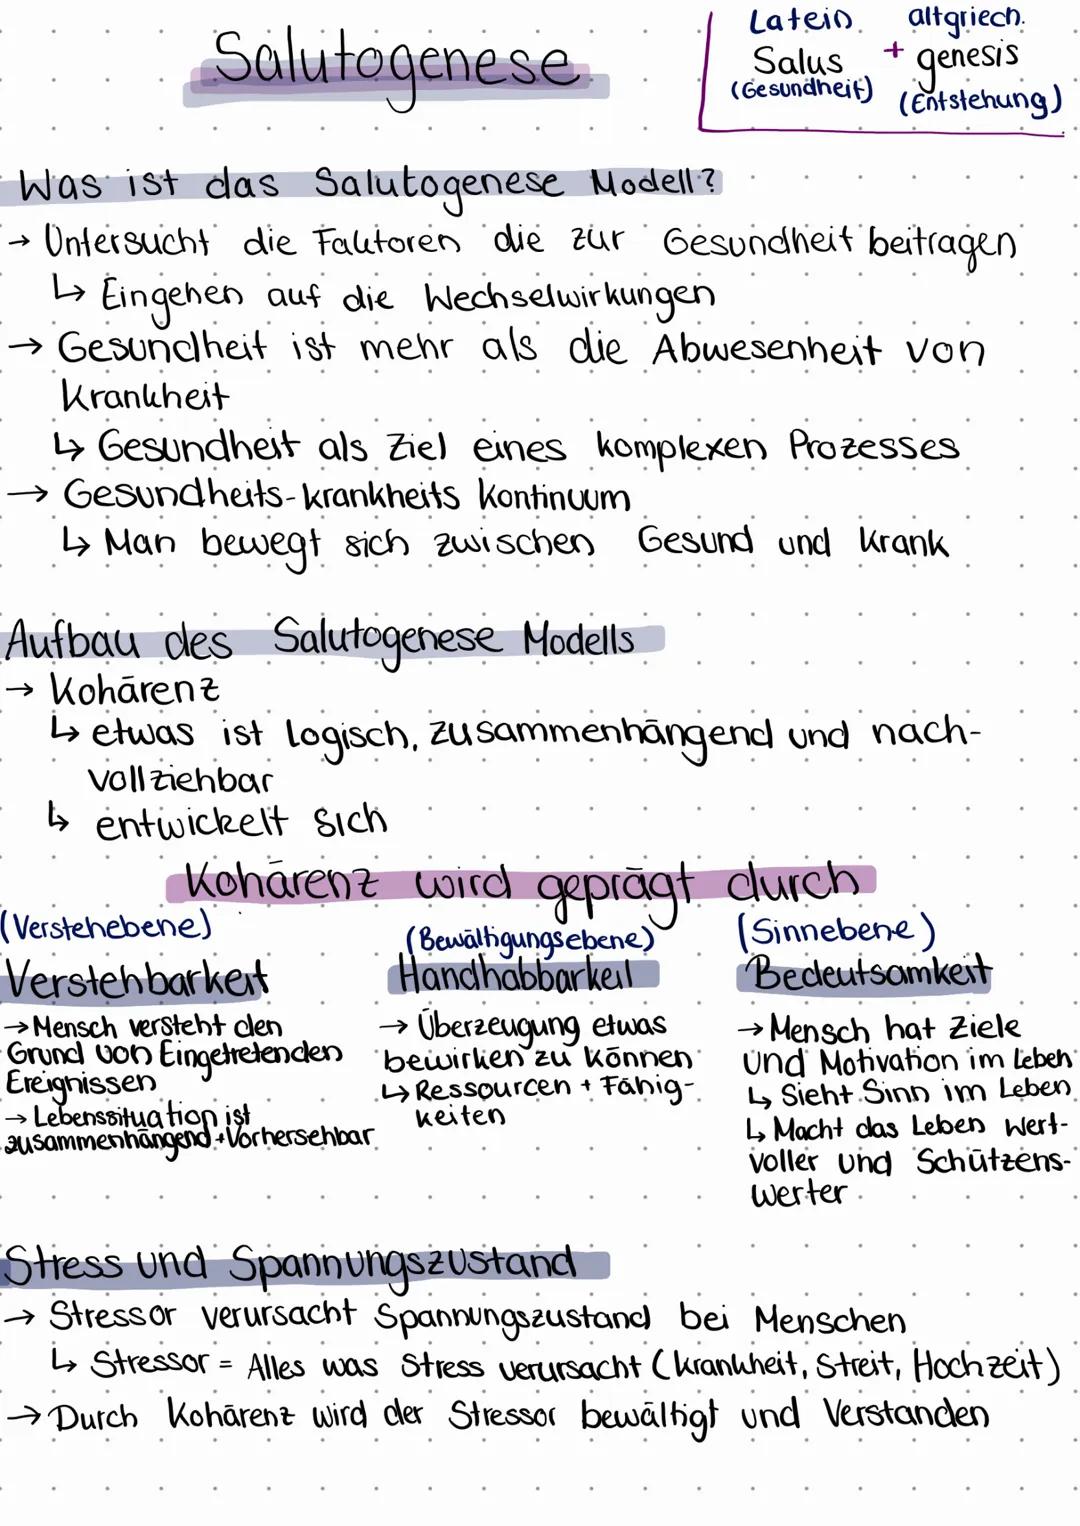 Salutogenese
Latein altgriech.
Salus + genesis
(Gesundheit) (Entstehung)
Was ist das Salutogenese Modell?
→ Untersucht die Faktoren die zur Gesundheit beitragen
↳ Eingehen auf die Wechselwirkungen
→ Gesundheit ist mehr als die Abwesenheit von
Krankheit
↳ Gesundheit als Ziel eines komplexen Prozesses
→ Gesundheits-krankheits Kontinuum
↳ Man bewegt sich zwischen Gesund und Krank
Aufbau des Salutogenese Modells
→ Kohärenz
↳ etwas ist logisch, zusammenhängend und nach-
vollziehbar
↳ entwickelt sich
Kohärenz wird geprägt durch
(Verstehebene)
Verstehbarkeit
→ Mensch versteht den
Grund von Eingetretenden
Ereignissen
→ Lebenssituation ist
zusammenhängend + Vorhersehbar
(Bewältigungsebene)
Handhabbarkeit
→ Überzeugung etwas
bewirken zu können
↳ Ressourcen + Fähig-
keiten
(Sinnebene)
Bedeutsamkeit
→ Mensch hat Ziele
und Motivation im Leben
↳ Sieht Sinn im Leben
↳ Macht das Leben Wert-
voller und Schützens-
werter
Stress und Spannungszustand
→ Stressor verursacht Spannungszustand bei Menschen
↳ Stressor = Alles was Stress verursacht (Krankheit, Streit, Hochzeit)
→ Durch Kohärenz wird der Stressor bewältigt und Verstanden